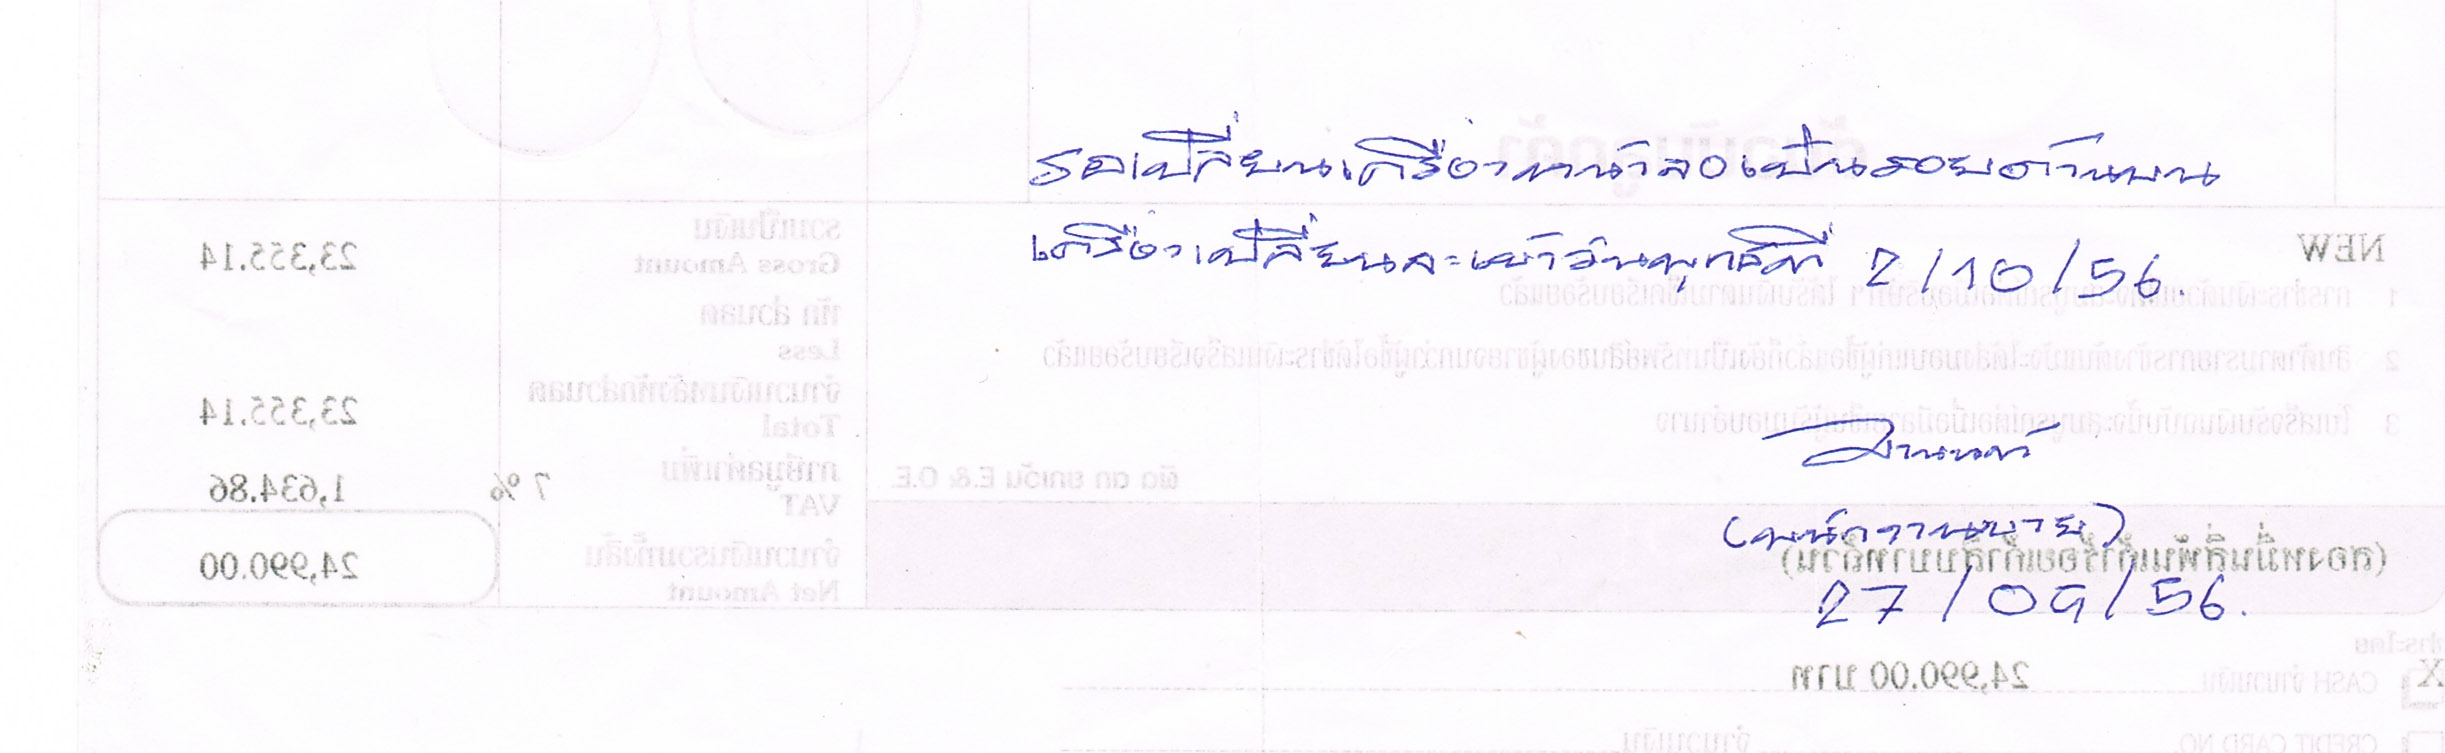 รอเปลี่ยนเครื่องหน้าจอเป็นรอยด้านบน
เครื่องเปลี่ยนจะเข้าวันพุทธที่ 2/10/56.
(พนักงานขาย)
27/09/56.
ต้นฉบับลูกค้า
NEW
รวมเป็นเงิน
Gross Amount
23,355.14
หัก ส่วนลด
Less
จำนวนเงินหลังหักส่วนลด
Total
23,355.14
ผิด ตก ยกเว้น E.& O.E.
ภาษีมูลค่าเพิ่ม
VAT
7 %
1,634.86
(สองหมื่นสี่พันเก้าร้อยเก้าสิบบาทถ้วน)
จำนวนเงินรวมทั้งสิ้น
Net Amount
24,990.00
ชำระโดย
X CASH จำนวนเงิน 24,990.00 บาท
CREDIT CARD NO. จำนวนเงิน